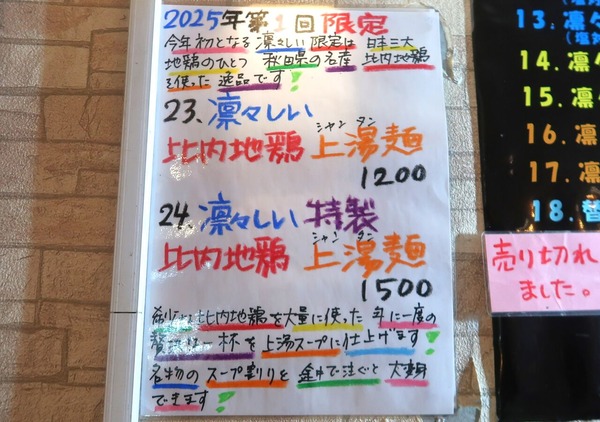 2025年第1回限定
今年初となる凛々しい限定は 日本三大
地鶏のひとつ 秋田県の名産 比内地鶏
を使った逸品です！
23.凛々しい
シャン タン
比内地鶏 上湯麺
1200
24.凛々しい 特製
シャン タン
比内地鶏 上湯麺
1500
比内地鶏を大量に使った 年に一度の
贅沢な一杯を上湯スープに仕上げます！
名物のスープ割りを 途中で注ぐと 大変身
できます！
13.凛々
14.凛
15.凛
16.凛
17.凛
18.替
売り切れ
ました。